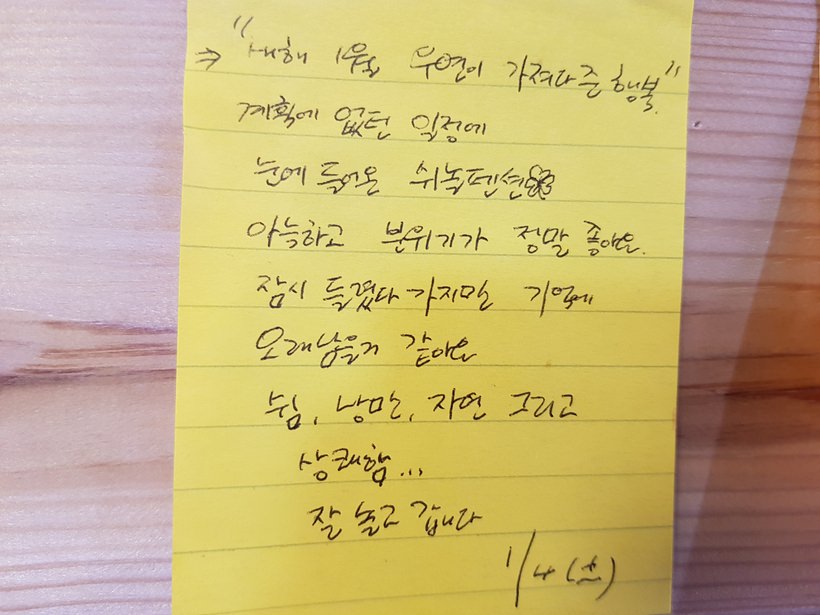 ⇒ "새해 1월, 우연이 가져다준 행복"
계획에 없던 일정에
눈에 들어온 쉬놀펜션
아늑하고 분위기가 정말 좋아요.
잠시 들렸다 가지만 기억에
오래남을거 같아요
쉼, 낭만, 자연 그리고
상쾌함...
잘 놀고 갑니다
1/4 (土)